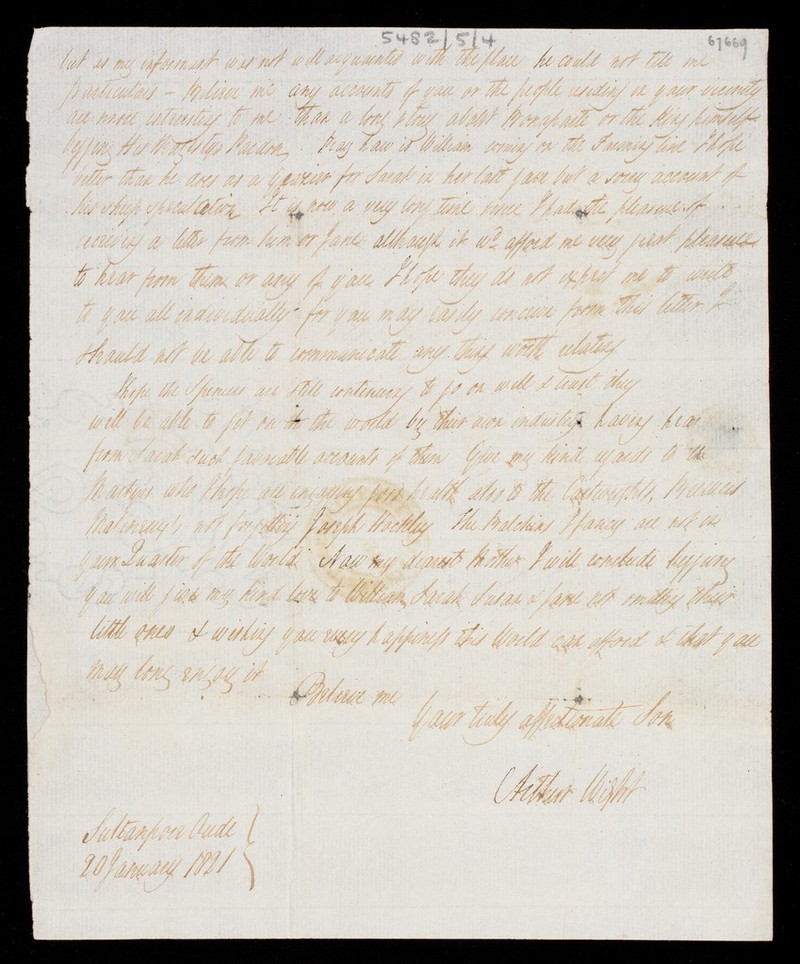 5482/5/4
67669
but as my informant was not well acquainted with the place he could not tell me
particulars – Believe me any accounts of you or the people residing in your vicinity
are more interesting to me than a long story about Bonaparte or the King himself
begging His Majestys Pardon. Pray how is William coming on the Farming line I hope
better than he does as a for Sarah in her last gave but a sorry account of
his speculation It is now a very long time since I had the pleasure of
receiving a letter from him or Jane although it wd. afford me very great pleasure
to hear from them or any of you. I hope they do not expect me to write
to you all individually for you may easily conceive from this letter I
should not be able to communicate any thing worth relating
I hope the Spencers are still continuing to go on well & trust they
will be able to get on in the world by their own industry having hear
from Sarah such favorable accounts of them Give my kind regards to the
Martyrs who I hope are enjoying good health also to the Cartwrights,
not forgetting Joseph Hockley The I fancy are not in
your Quarter of the World. Now my dearest Mother I will conclude begging
you will give my kind love to William, Sarah Susan & Jane not omitting their
little ones & wishing you every happiness this World can afford & that you
may long enjoy it
Believe me
Your truly affectionate Son
Arthur Wight
Sultanpore Oude
20 January 1821